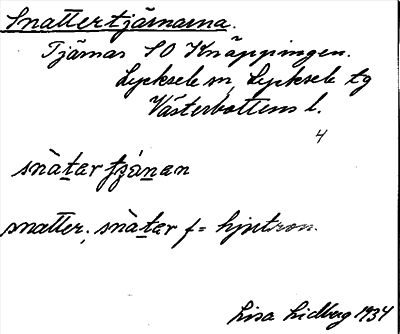 Snattertjärnarna.
Tjärnar SO Knäppingen.
Lycksele sn, Lycksele tg
Västerbottens l.
4
snàtar tjánan
snatter, snàtar f = hjortron.
Lisa Lidberg 1934